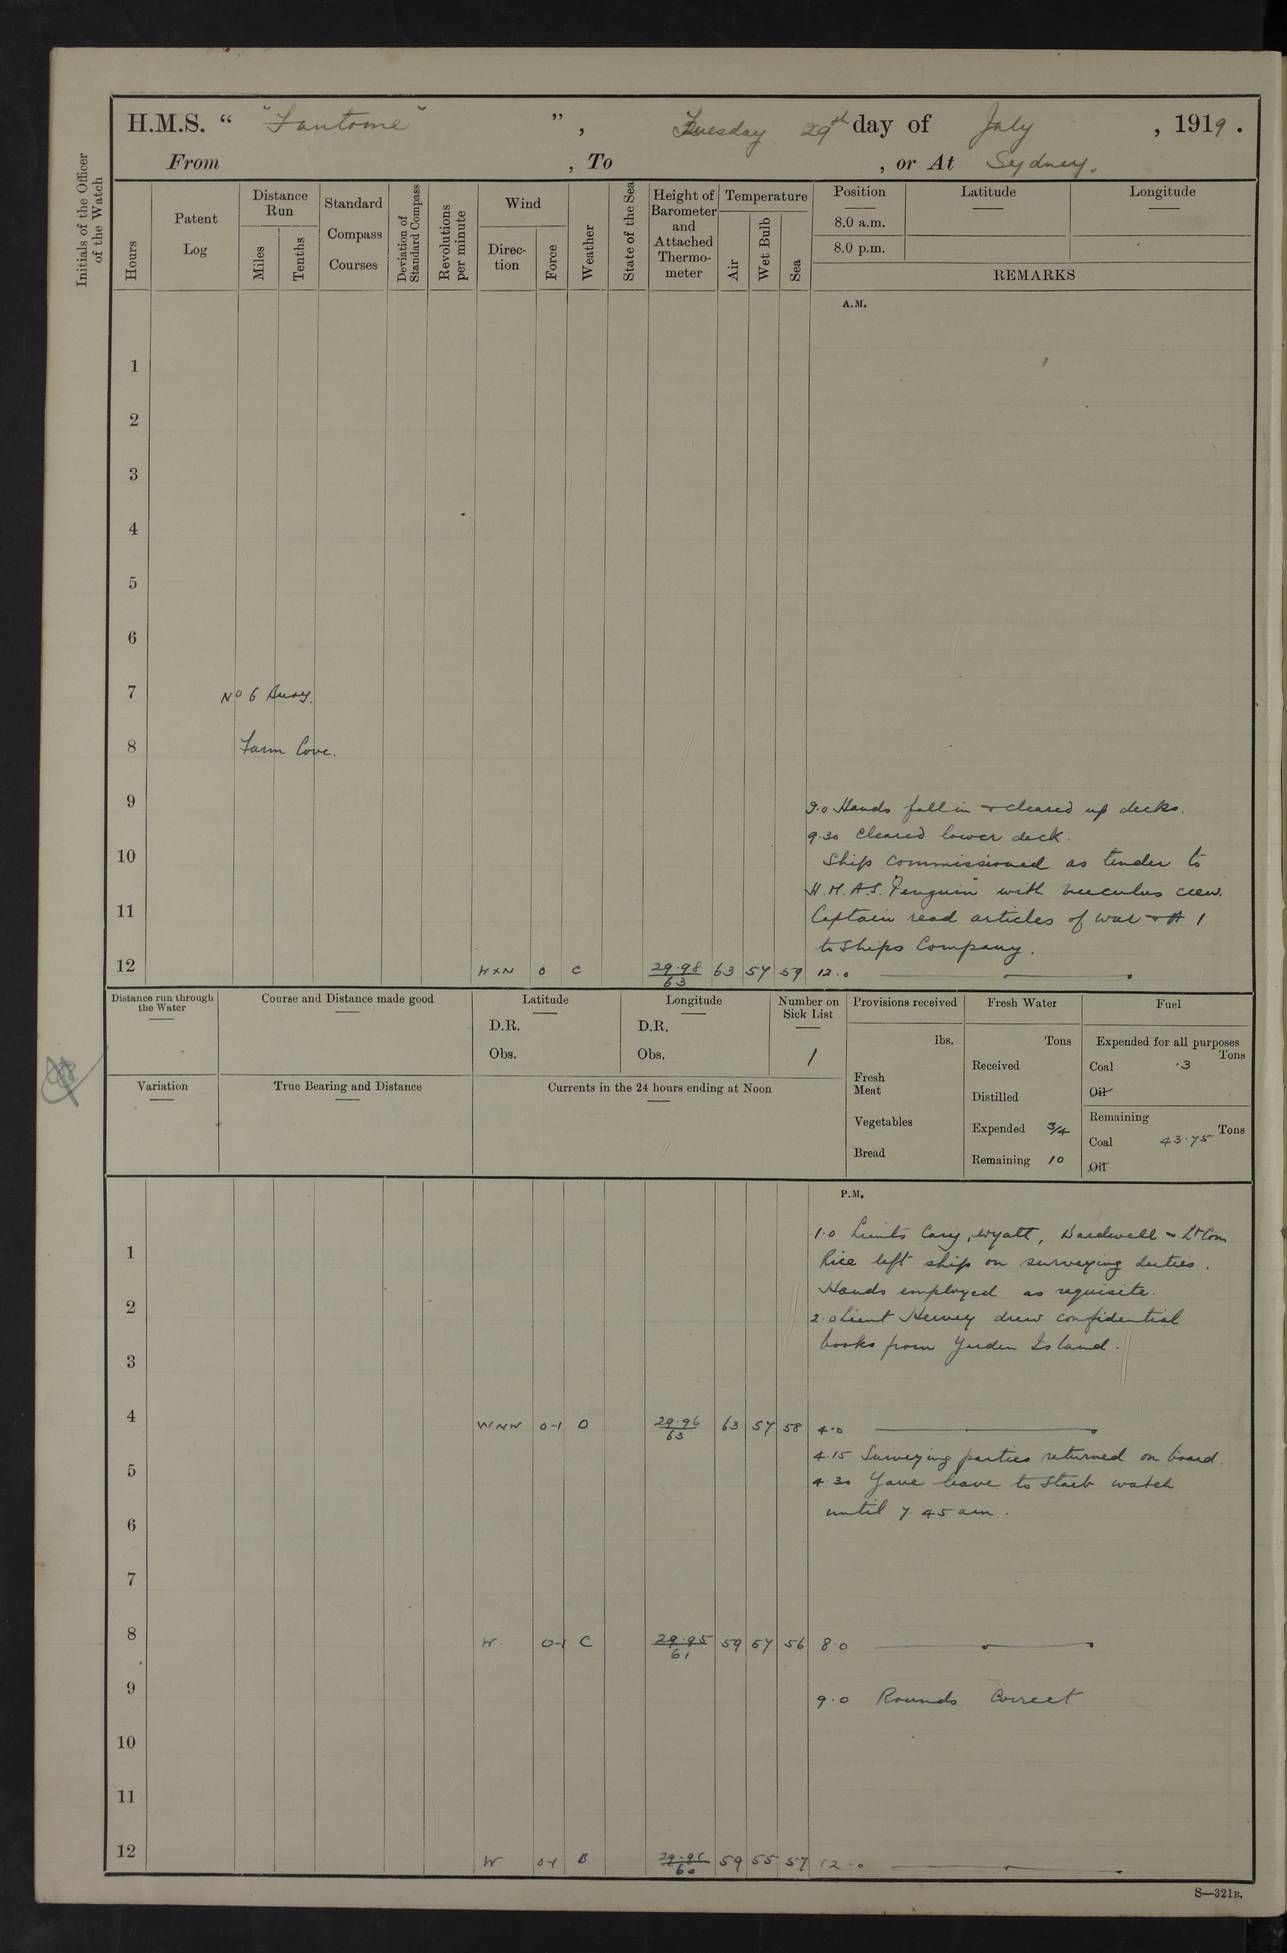 H.M.S. “ "Fantome" ” , Tuesday 29th day of July , 1919 .
From , To , or At Sydney.
Initials of the Officer of the Watch
Hours
Patent Log
Distance Run
Miles
Tenths
Standard Compass Courses
Deviation of Standard Compass
Revolutions per minute
Wind
Direction
Force
Weather
State of the Sea
Height of Barometer and Attached Thermometer
Temperature
Air
Wet Bulb
Sea
Position Latitude Longitude
8.0 a.m.
8.0 p.m.
REMARKS
A.M.
1
2
3
4
5
6
7 No 6 Buoy.
8 Farm Cove.
9 9.0 Hands fell in + cleared up decks.
9.30 Cleared lower deck.
10 Ship commissioned as tender to
H.M.A.S. "Penguin" with nucleus crew.
11 Captain read articles of war + A 1
to Ships Company.
12 W×N 0 C 29.98/63 63 57 59 12.0
Distance run through the Water
Course and Distance made good
Latitude
D.R.
Obs.
Longitude
D.R.
Obs.
Number on Sick List
1
Variation
True Bearing and Distance
Currents in the 24 hours ending at Noon
Provisions received
lbs.
Fresh Meat
Vegetables
Bread
Fresh Water
Tons
Received
Distilled
Expended 3/4
Remaining 10
Fuel
Expended for all purposes
Tons
Coal .3
Oil
Remaining
Tons
Coal 43.75
Oil
P.M.
1.0 Lieuts Cary, Wyatt, Bardwell + Lt Com
1 Rice left ship on surveying duties.
Hands employed as requisite.
2 2.0 Lieut Hervey drew confidential
books from Garden Island.
3
4 WNW 0-1 O 29.96/63 63 57 58 4.0
4.15 Surveying parties returned on board.
5 4.30 Gave leave to Starb watch
until 7.45 am.
6
7
8 W 0-1 C 29.95/61 59 57 56 8.0
9 9.0 Rounds Correct
10
11
12 W 0-1 B 29.95/60 59 55 57 12.0
S—321B.